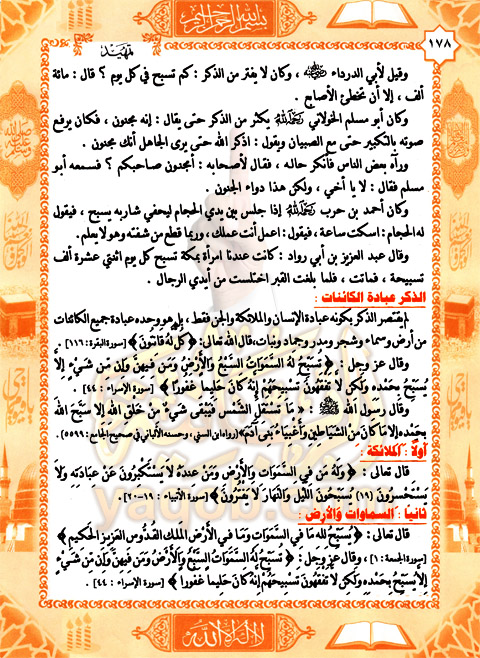 بسم الله الرحمن الرحيم
١٧٨
تمهيد
وقيل لأبي الدرداء ﷺ ، وكان لا يفتر من الذكر : كم تسبح في كل يوم ؟ قال : مائة
ألف ، إلا أن تخطئ الأصابع .
وكان أبو مسلم الخولاني رَحِمَهُ اللهُ يكثر من الذكر حتى يقال : إنه مجنون ، فكان يرفع
صوته بالتكبير حتى مع الصبيان ويقول : اذكر الله حتى يرى الجاهل أنك مجنون .
ورآه بعض الناس فأنكر حاله ، فقال لأصحابه : أمجنون صاحبكم ؟ فسمعه أبو
مسلم فقال : لا يا أخي ، ولكن هذا دواء الجنون .
وكان أحمد بن حرب رَحِمَهُ اللهُ إذا جلس بين يدي الحجام ليحفي شاربه يسبح ، فيقول
له الحجام : اسكت ساعة ، فيقول : اعمل أنت عملك ، وربما قطع من شفته وهو لا يعلم .
وقال عبد العزيز بن أبي رواد : كانت عندنا امرأة بمكة تسبح كل يوم اثنتي عشرة ألف
تسبيحة ، فماتت ، فلما بلغت القبر اختلست من أيدي الرجال .
الذكر عبادة الكائنات :
لم يقتصر الذكر بكونه عبادة الإنسان والملائكة والجن فقط ، بل هو وحده عبادة جميع الكائنات
من أرض وسماء وشجر ومدر وجماد ونبات ، قال الله تعالى : ﴿ كُلٌّ لَهُ قَانِتُونَ ﴾ [سورة البقرة : ١١٦] .
وقال عز وجل : ﴿ تُسَبِّحُ لَهُ السَّمَوَاتُ السَّبْعُ وَالأَرْضُ وَمَن فِيهِنَّ وَإِن مِّن شَيْءٍ إِلاَّ
يُسَبِّحُ بِحَمْدِهِ وَلَكِن لاَ تَفْقَهُونَ تَسْبِيحَهُمْ إِنَّهُ كَانَ حَلِيمًا غَفُورًا ﴾ [سورة الإسراء : ٤٤] .
وقال رسول الله ﷺ : « مَا تَسْتَقِلُّ الشَّمْسُ فَيَبْقَى شَيْءٌ مِنْ خَلْقِ اللهِ إِلاَّ سَبَّحَ اللهَ
بِحَمْدِهِ إِلاَّ مَا كَانَ مِنَ الشَّيَاطِينِ وَأَغْبِيَاءِ بَنِي آدَمَ » (رواه ابن السني ، وحسنه الألباني في صحيح الجامع : ٥٥٩٩) .
أولاً : الملائكة :
قال تعالى : ﴿ وَلَهُ مَن فِي السَّمَوَاتِ وَالأَرْضِ وَمَنْ عِندَهُ لاَ يَسْتَكْبِرُونَ عَنْ عِبَادَتِهِ وَلاَ
يَسْتَحْسِرُونَ (١٩) يُسَبِّحُونَ اللَّيْلَ وَالنَّهَارَ لاَ يَفْتُرُونَ ﴾ [سورة الأنبياء : ١٩-٢٠] .
ثانياً : السماوات والأرض :
قال تعالى : ﴿ يُسَبِّحُ لِلَّهِ مَا فِي السَّمَوَاتِ وَمَا فِي الأَرْضِ الْمَلِكِ الْقُدُّوسِ الْعَزِيزِ الْحَكِيمِ ﴾
[سورة الجمعة : ١] ، وقال عز وجل : ﴿ تُسَبِّحُ لَهُ السَّمَوَاتُ السَّبْعُ وَالأَرْضُ وَمَن فِيهِنَّ وَإِن مِّن شَيْءٍ
إِلاَّ يُسَبِّحُ بِحَمْدِهِ وَلَكِن لاَ تَفْقَهُونَ تَسْبِيحَهُمْ إِنَّهُ كَانَ حَلِيمًا غَفُورًا ﴾ [سورة الإسراء : ٤٤] .
لا إله إلا الله